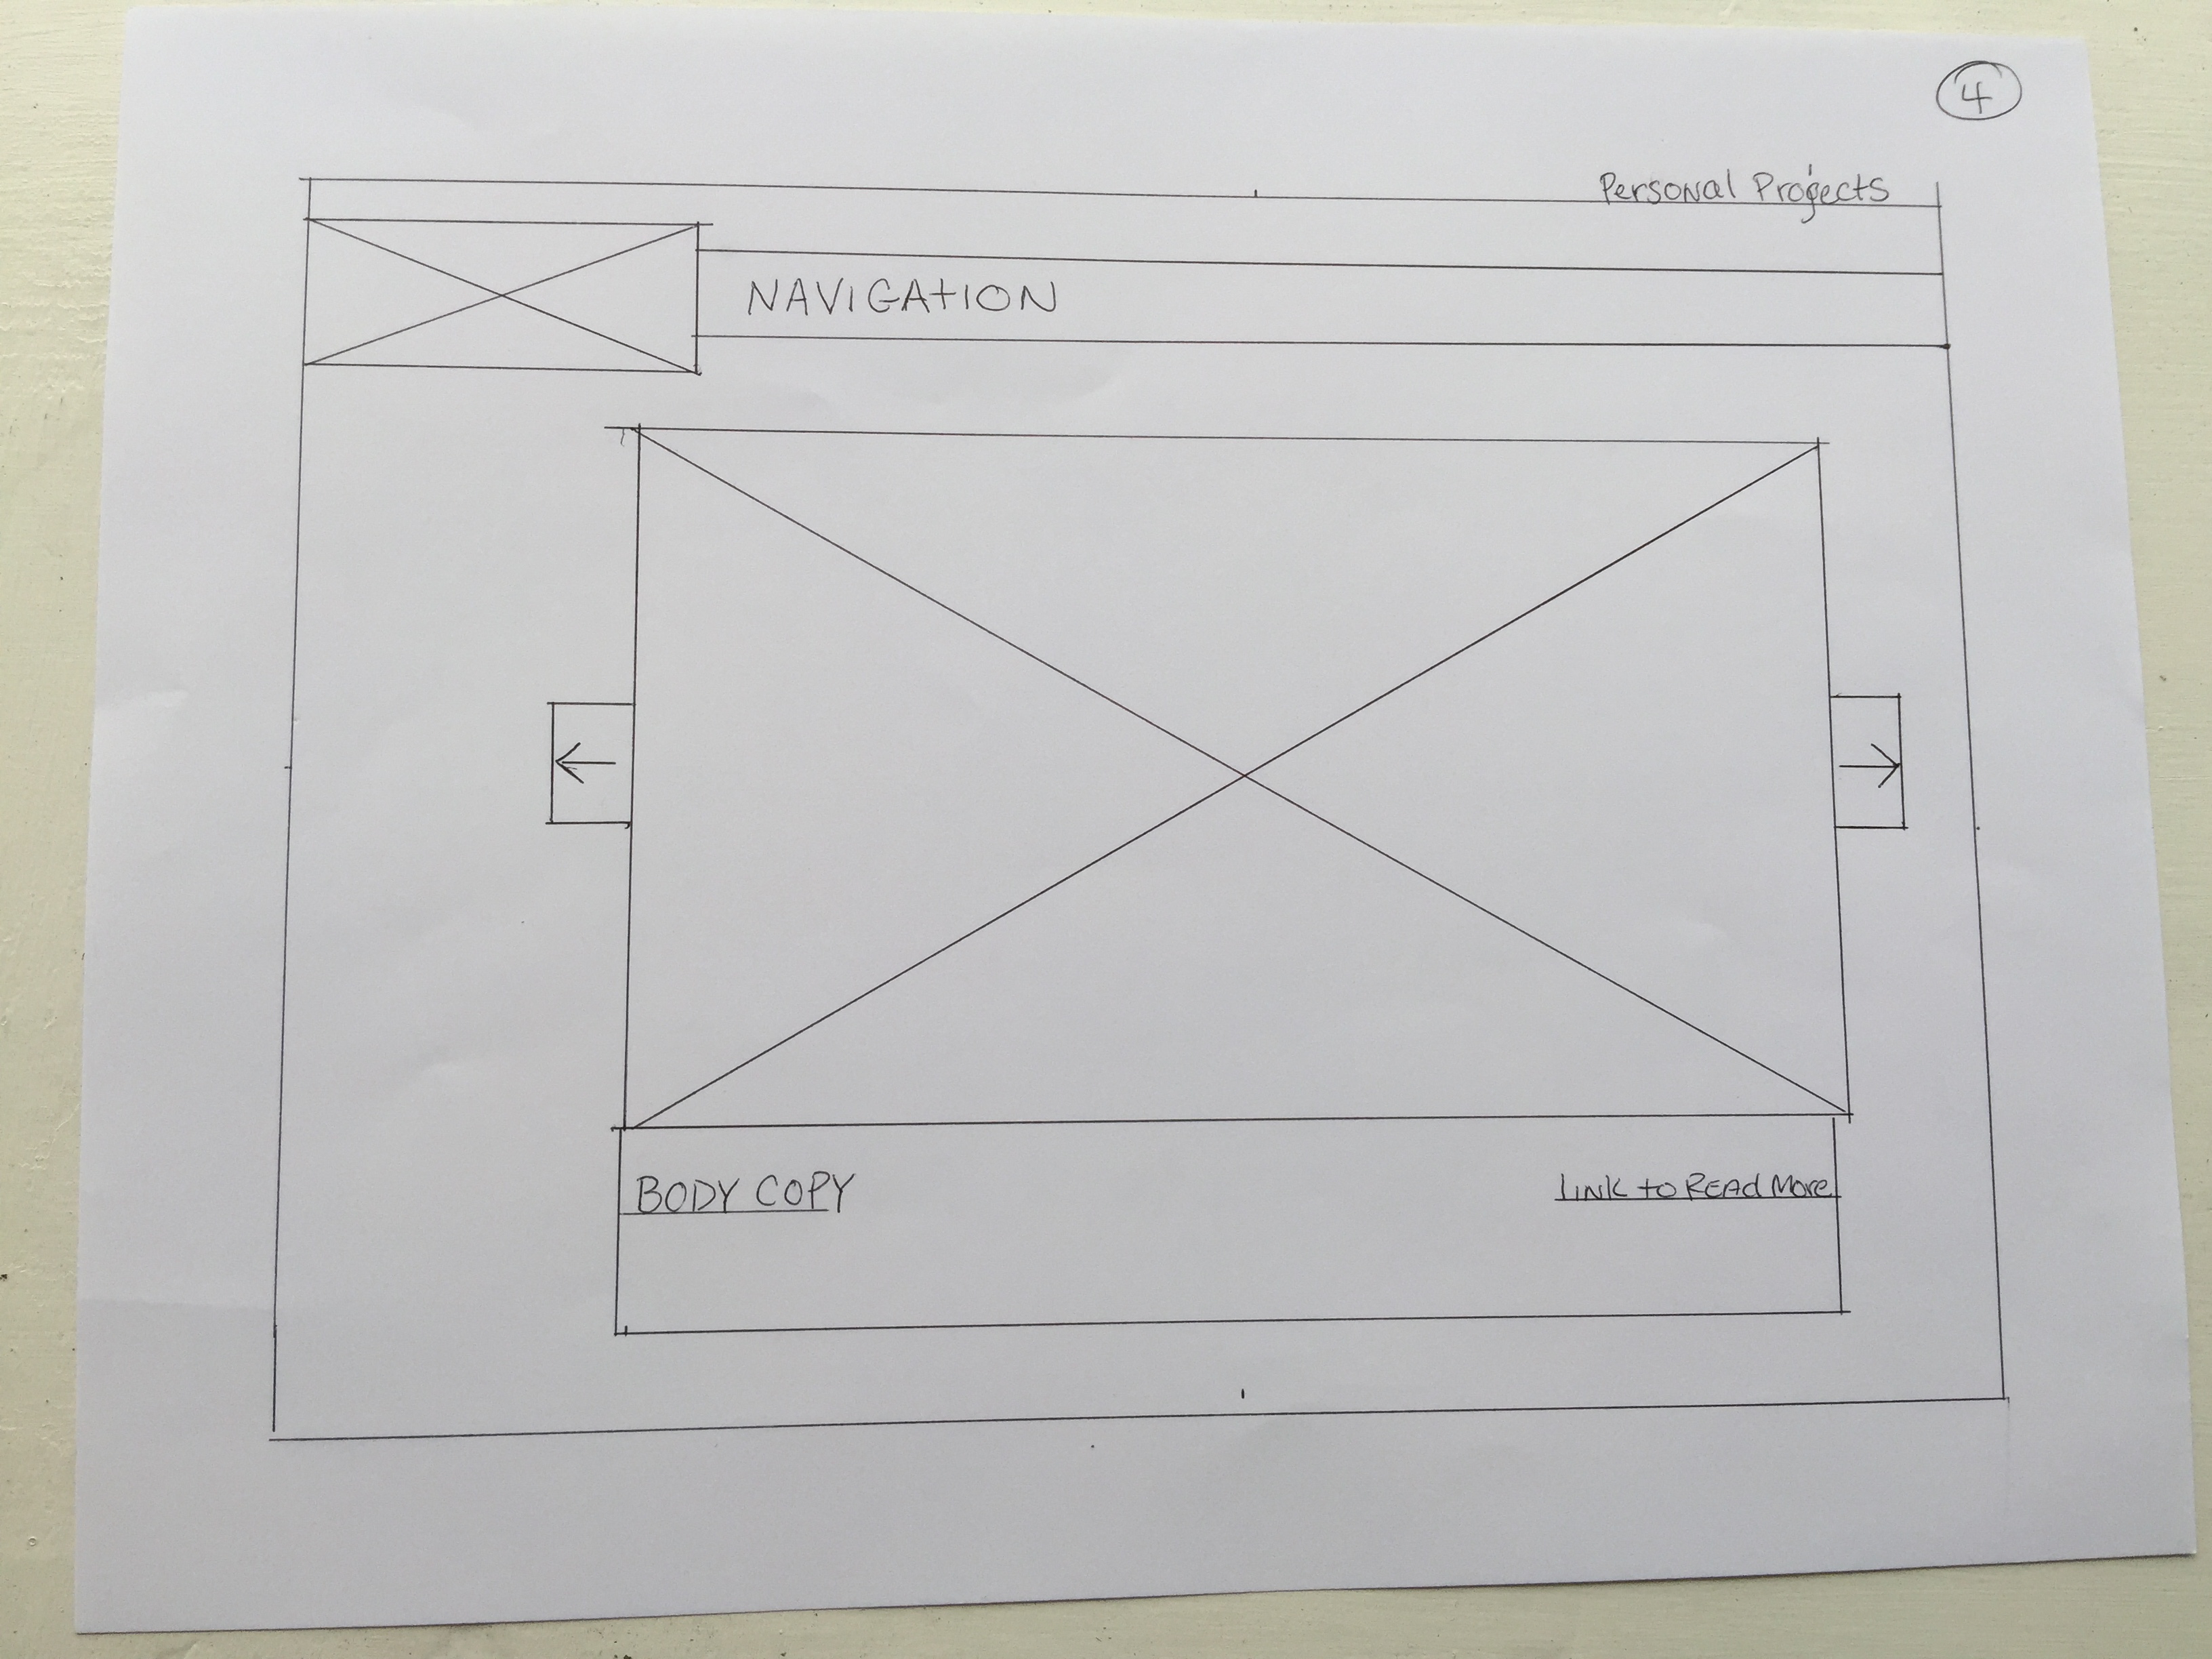 4
Personal Projects
NAVIGATION
BODY COPY
Link to READ More